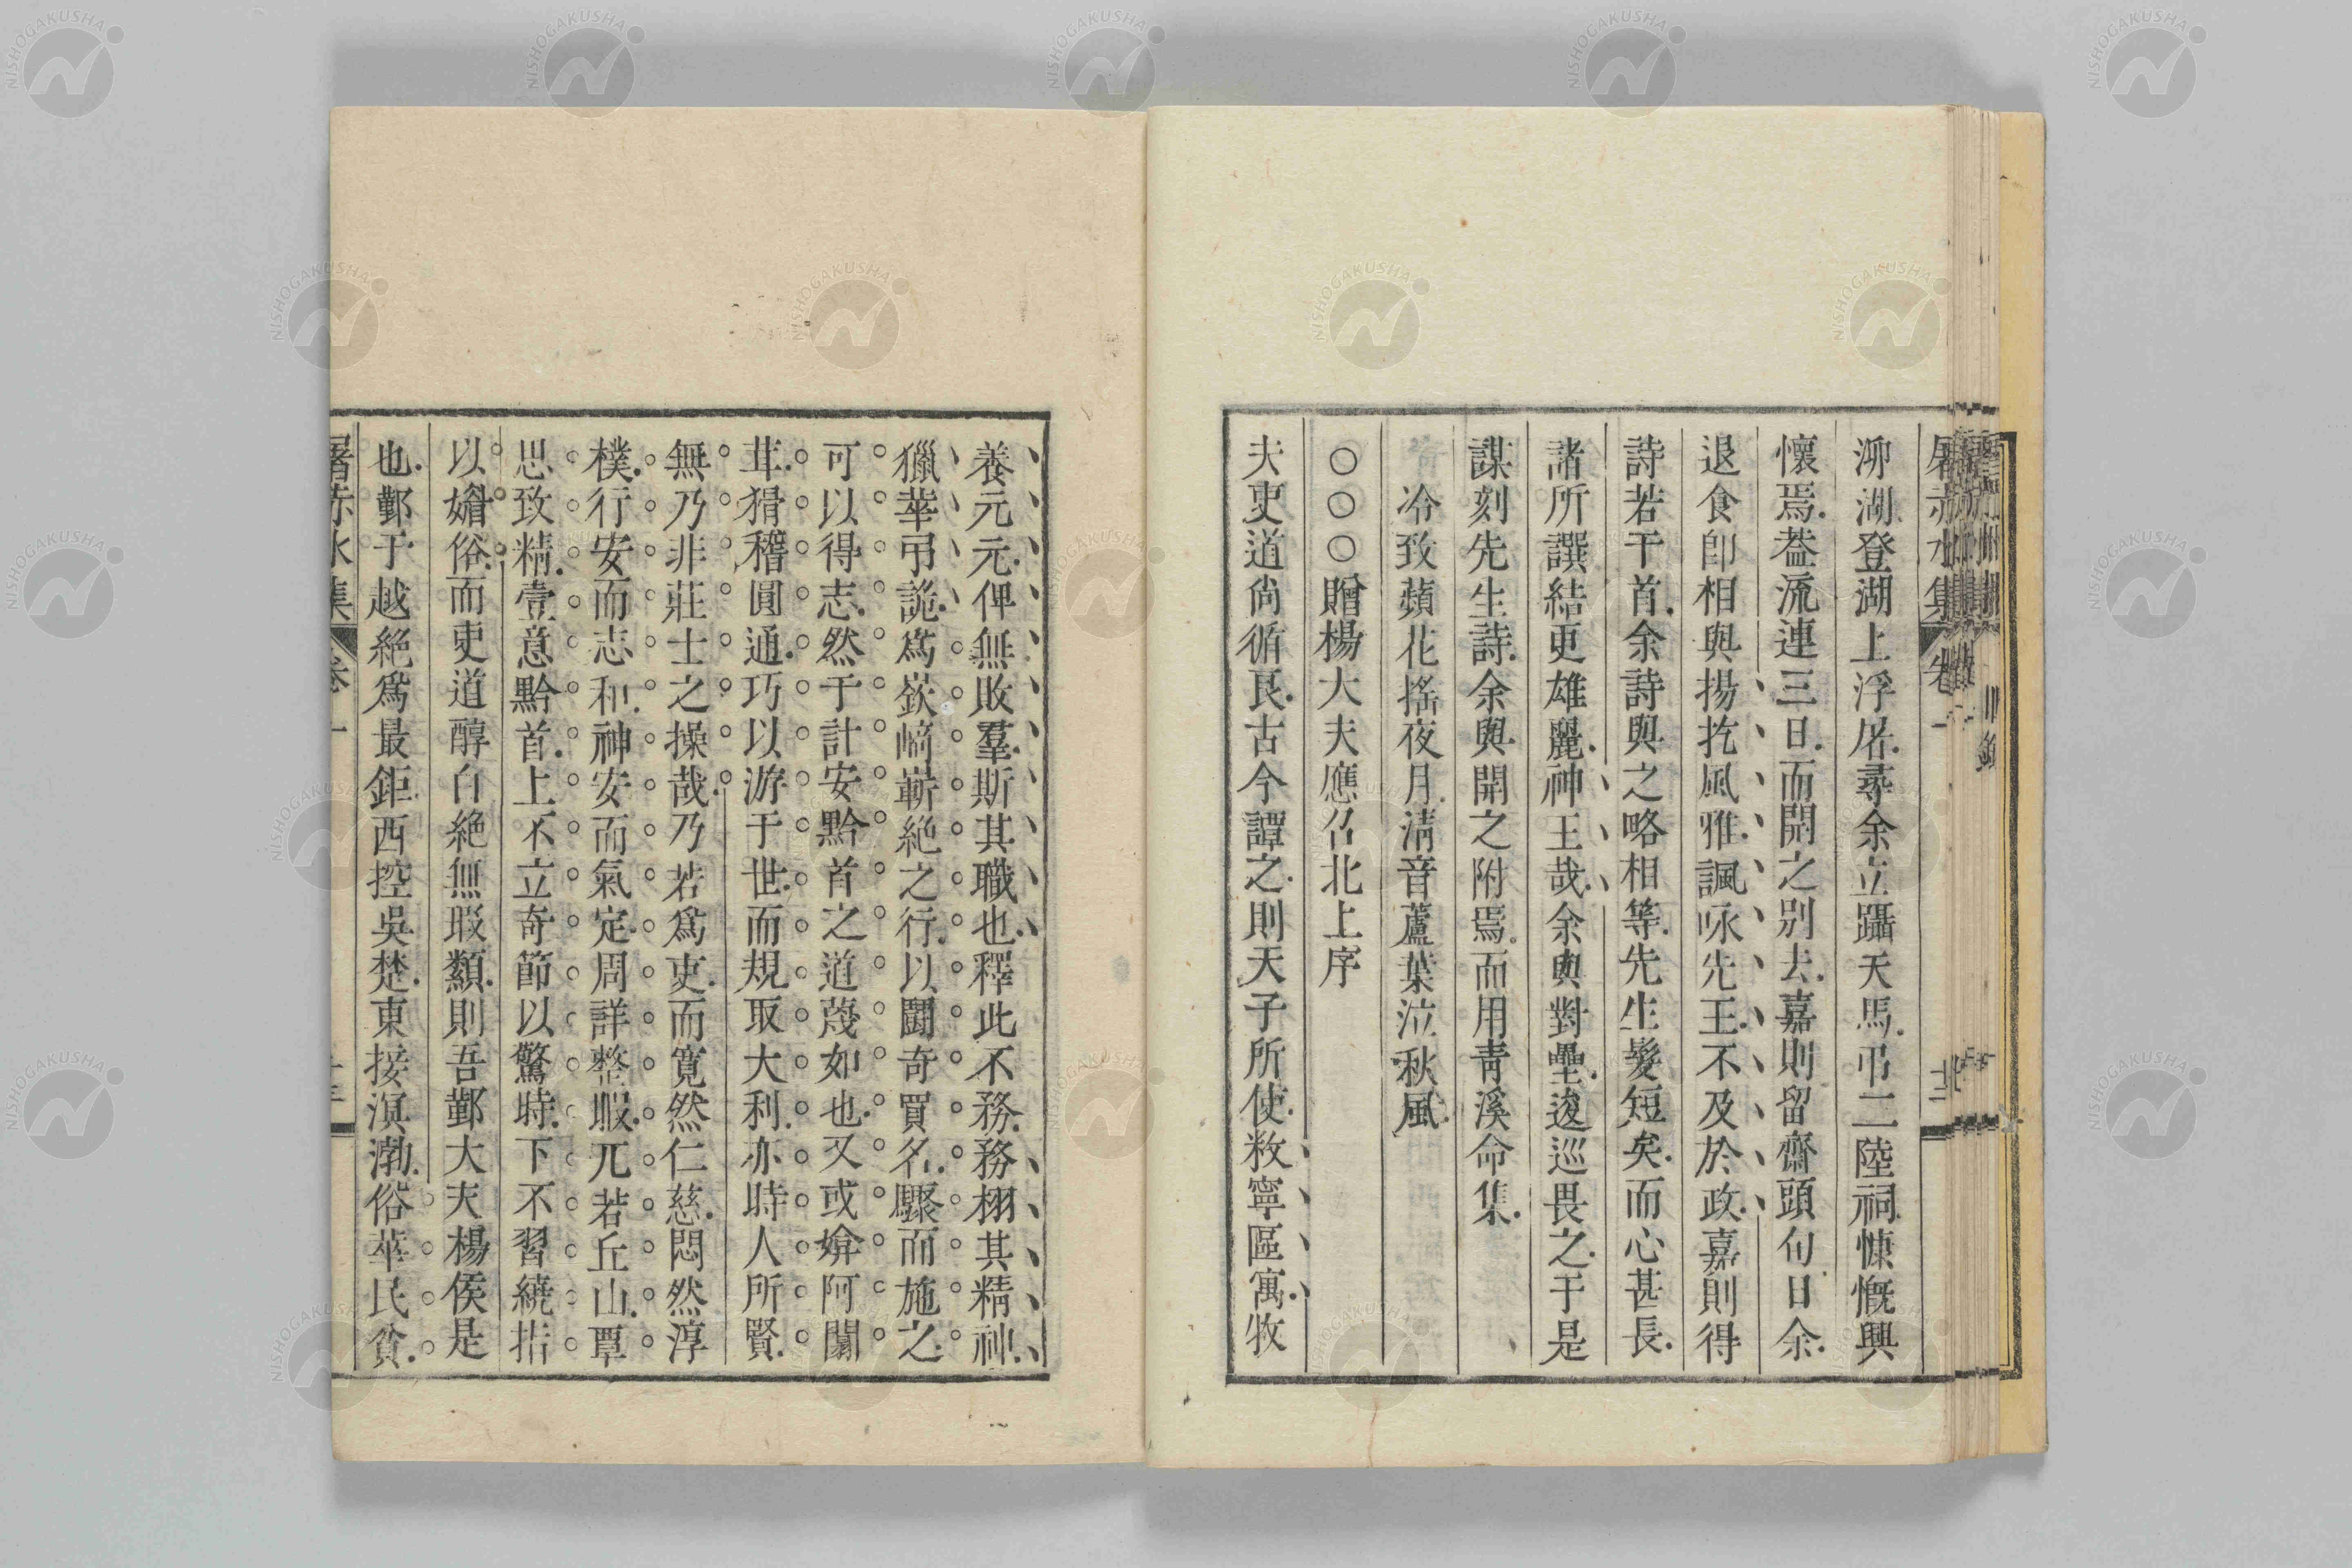 屠赤水集 卷一
泖湖登湖上浮屠尋余立躡天馬弔二陸祠慷慨興
懷焉葢流連三日而開之别去嘉則留齋頭旬日余
退食卽相與揚扢風雅諷咏先王不及於政嘉則得
詩若干首余詩與之略相等先生髮短矣而心甚長
諸所譔結更雄麗神王哉余輿對壘逡巡畏之于是
謀刻先生詩余與開之附焉而用靑溪命集
冷致蘋花搖夜月淸音蘆葉泣秋風
○○○贈楊大夫應召北上序
夫吏道尙循良古今譚之則天子所使敉寧區㝢牧
養元元俾無敗羣斯其職也釋此不務務栩其精神
獵華弔詭爲嶔崎嶄絶之行以鬭奇買名驟而施之
可以得志然于計安黔首之道蔑如也又或媕阿闒
茸猾稽圓通巧以游于世而規取大利亦時人所賢
無乃非莊士之操哉乃若爲吏而寬然仁慈悶然淳
樸行安而志和神安而氣定周詳整暇兀若丘山覃
思致精壹意黔首上不立奇節以驚時下不習繞指
以媚俗而吏道醇白絶無瑕纇則吾鄞大夫楊侯是
也鄞于越絶爲最鉅西控吳楚東接溟渤俗華民貧
屠赤水集 卷一
NISHOGAKUSHA